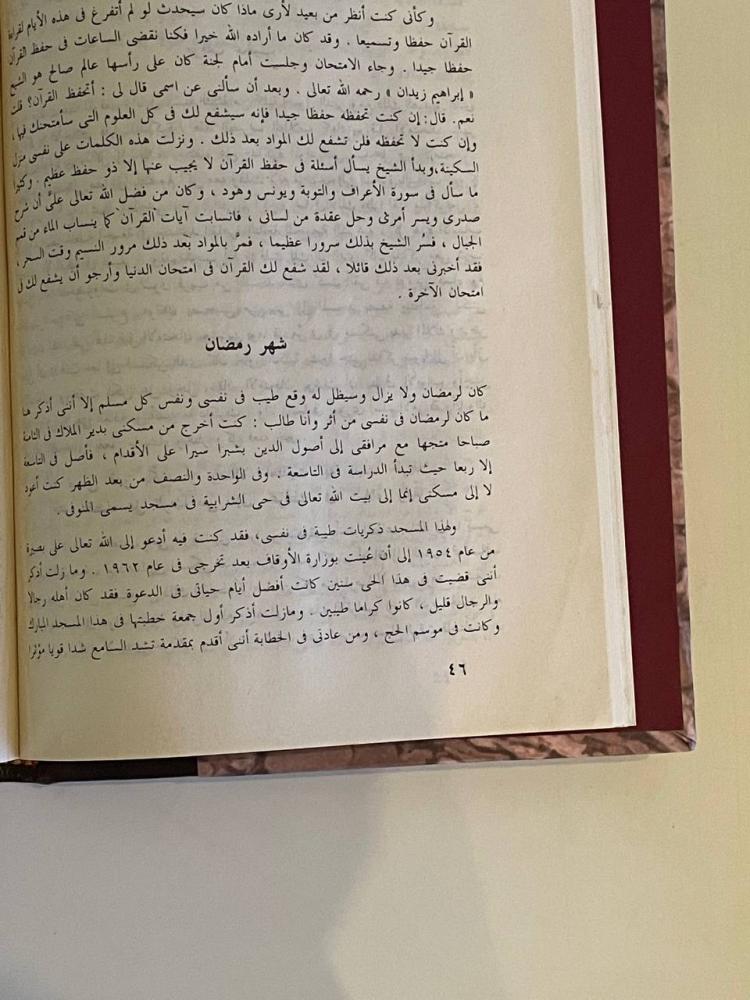 وكأنى كنت أنظر من بعيد لأرى ماذا كان سيحدث لو لم أتفرغ فى هذه الأيام لقراءة
القرآن حفظا وتسميعا . وقد كان ما أراده الله خيرا فكنا نقضى الساعات فى حفظ القرآن
حفظا جيدا . وجاء الامتحان وجلست أمام لجنة كان على رأسها عالم صالح هو الشيخ
« إبراهيم زيدان » رحمه الله تعالى . وبعد أن سألنى عن اسمى قال لى : أتحفظ القرآن؟ قلت
نعم. قال: إن كنت تحفظه حفظا جيدا فإنه سيشفع لك فى كل العلوم التى سأمتحنك فيها ،
وإن كنت لا تحفظه فلن تشفع لك المواد بعد ذلك . ونزلت هذه الكلمات على نفسى منزل
السكينة،وبدأ الشيخ يسأل أسئلة فى حفظ القرآن لا يجيب عنها إلا ذو حفظ عظيم . وكثيرا
ما سأل فى سورة الأعراف والتوبة ويونس وهود ، وكان من فضل الله تعالى علىَّ أن شرح
صدرى ويسر أمرى وحل عقدة من لسانى ، فانسابت آيات القرآن كما ينساب الماء من قمم
الجبال ، فسُر الشيخ بذلك سرورا عظيما ، فمرَّ بالمواد بعد ذلك مرور النسيم وقت السحر ،
فقد أخبرنى بعد ذلك قائلا ، لقد شفع لك القرآن فى امتحان الدنيا وأرجو أن يشفع لك فى
امتحان الآخرة .
شهر رمضان
كان لرمضان ولا يزال وسيظل له وقع طيب فى نفسى ونفس كل مسلم إلا أننى أذكر هنا
ما كان لرمضان فى نفسى من أثر وأنا طالب : كنت أخرج من مسكنى بدير الملاك فى الثامنة
صباحا متجها مع مرافقى إلى أصول الدين بشبرا سيرا على الأقدام ، فأصل فى التاسعة
إلا ربعا حيث تبدأ الدراسة فى التاسعة . وفى الواحدة والنصف من بعد الظهر كنت أعود
لا إلى مسكنى إنما إلى بيت الله تعالى فى حى الشرابية فى مسجد يسمى المنوفى .
ولهذا المسجد ذكريات طيبة فى نفسى، فقد كنت فيه أدعو إلى الله تعالى على بصيرة
من عام ١٩٥٤ إلى أن عُينت بوزارة الأوقاف بعد تخرجى فى عام ١٩٦٢ . وما زلت أذكر
أننى قضيت فى هذا الحى سنين كانت أفضل أيام حياتى فى الدعوة فقد كان أهله رجالا
والرجال قليل ، كانوا كراما طيبين . ومازلت أذكر أول جمعة خطبتها فى هذا المسجد المبارك
وكانت فى موسم الحج ، ومن عادتى فى الخطابة أننى أقدم بمقدمة تشد السامع شدا قويا مؤثرا
٤٦